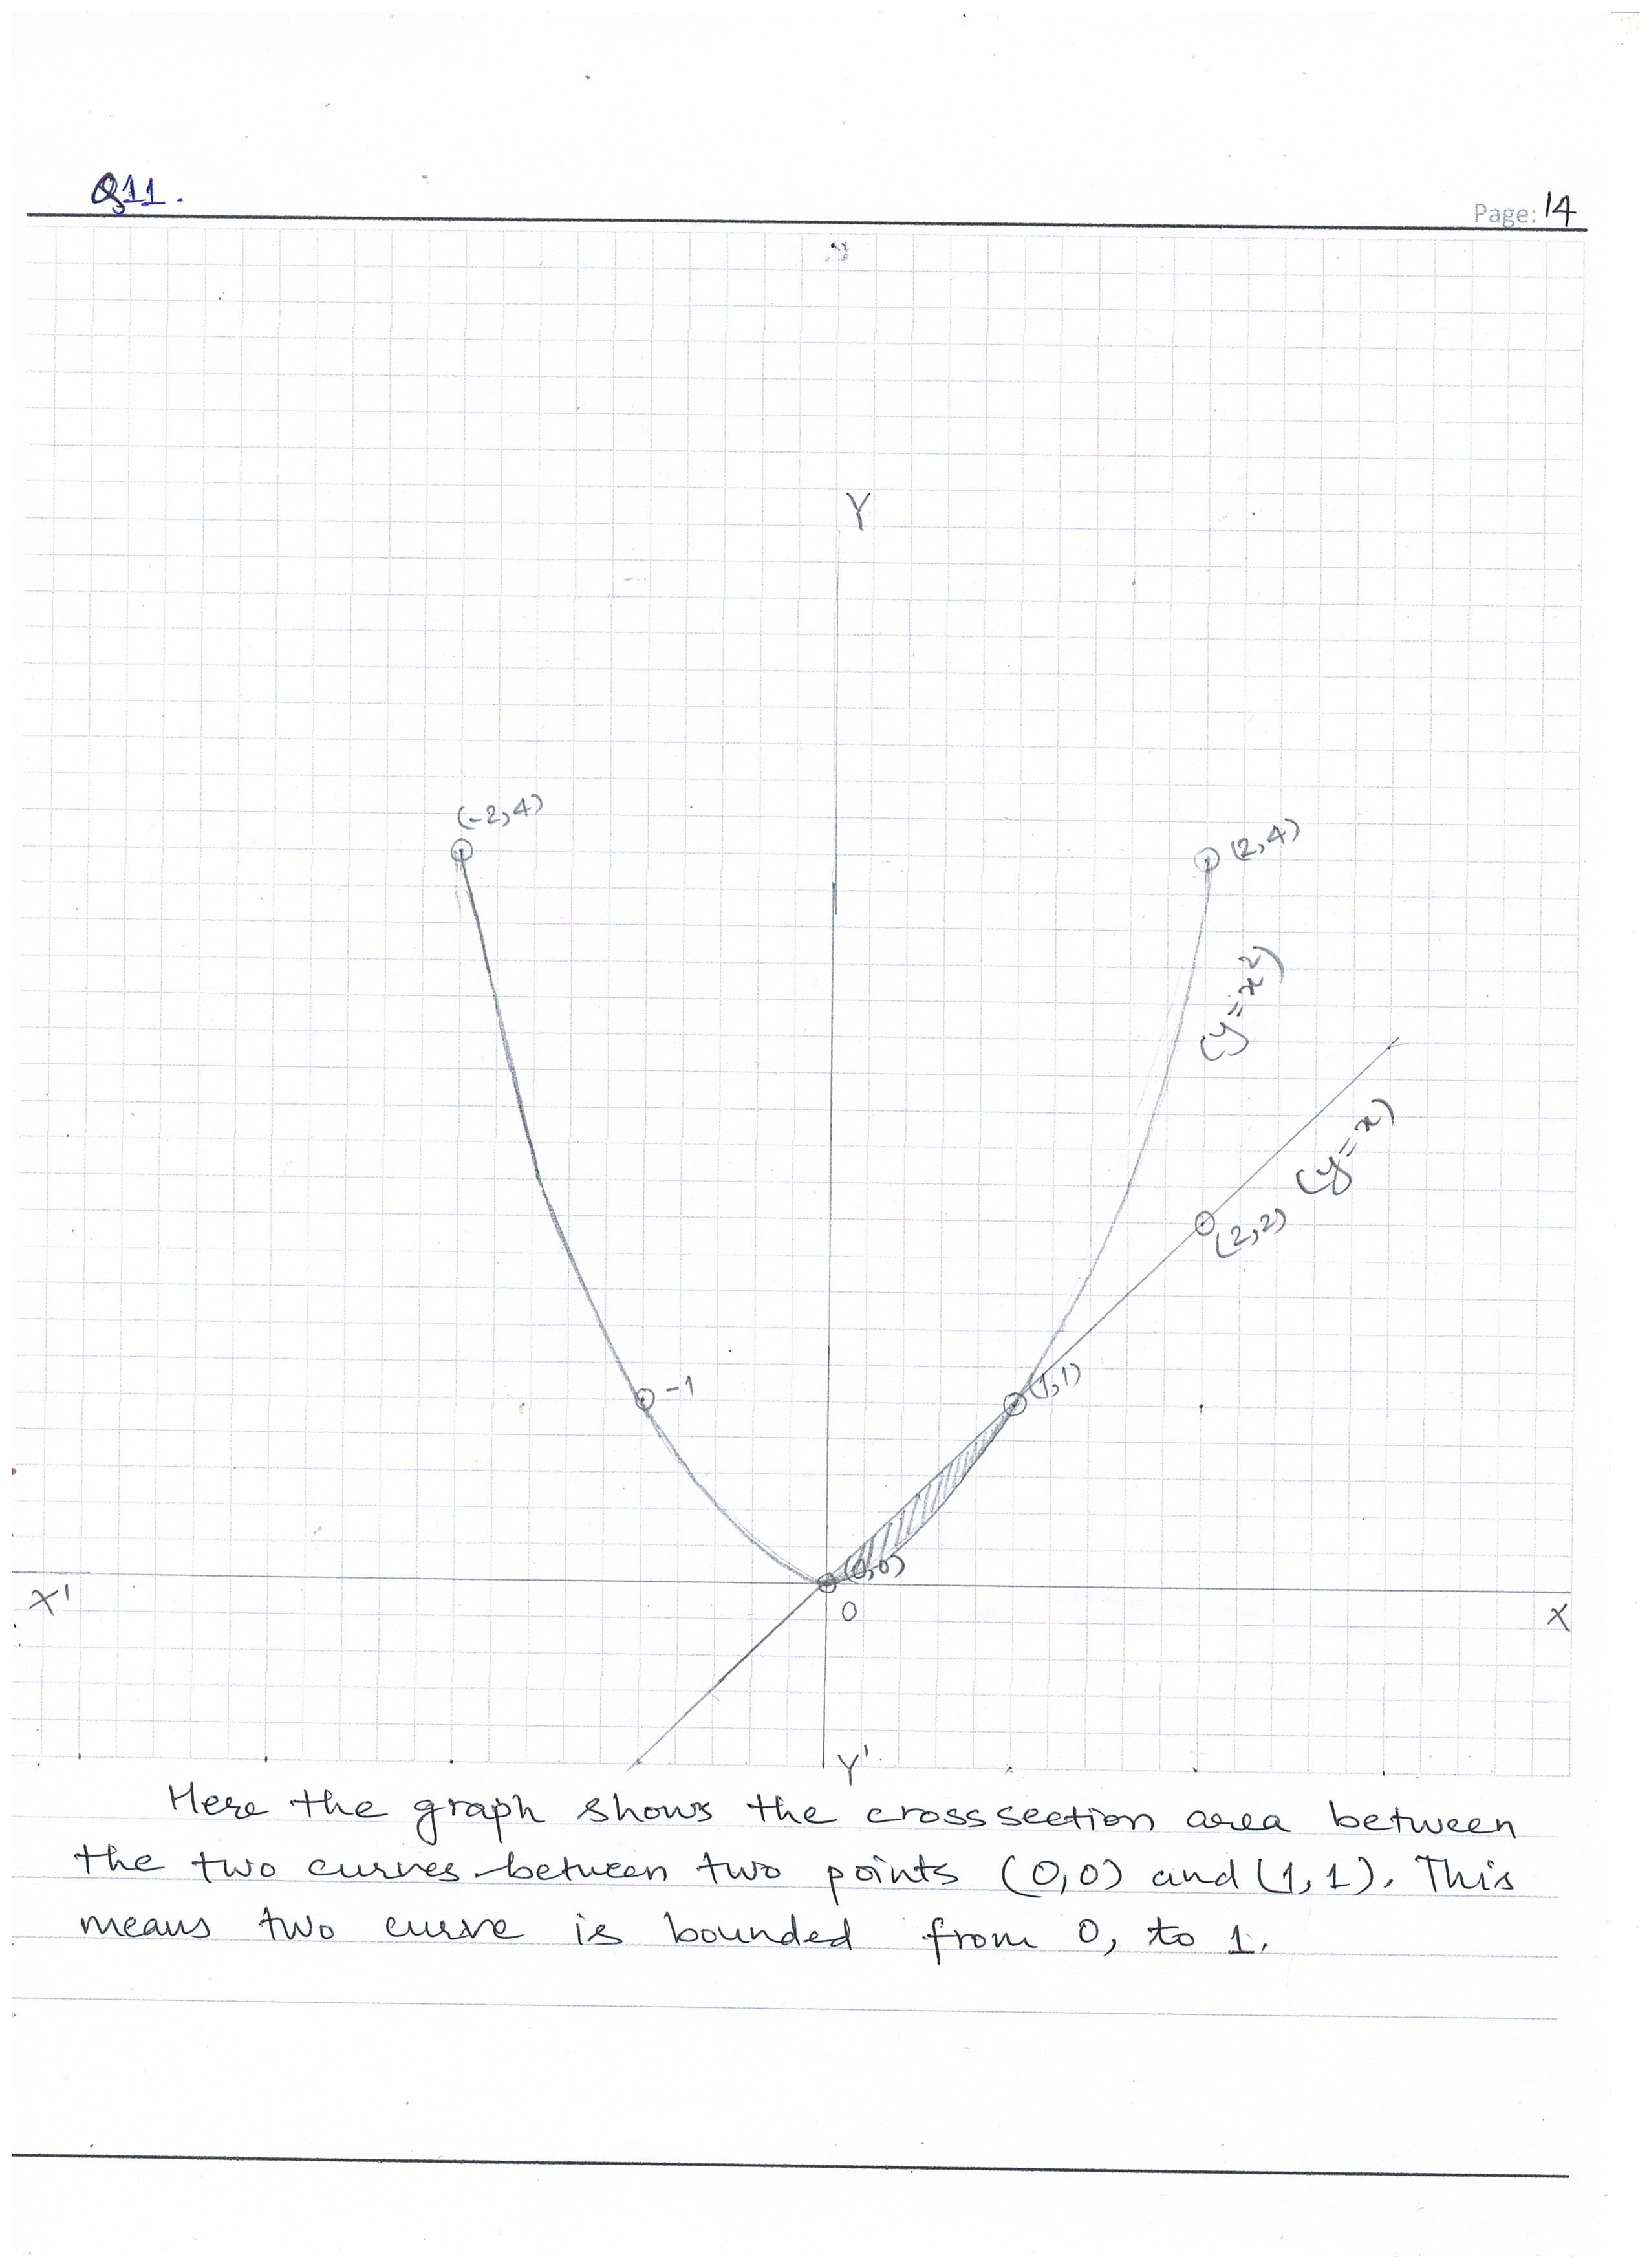 Q11.
Page: 14
Y
(-2,4)
(2,4)
(y=x²)
(y=x)
(2,2)
-1
(1,1)
(0,0)
X'
O
X
Y'
Here the graph shows the crosssection area between
the two curves between two points (0,0) and (1,1). This
means two curve is bounded from 0, to 1.